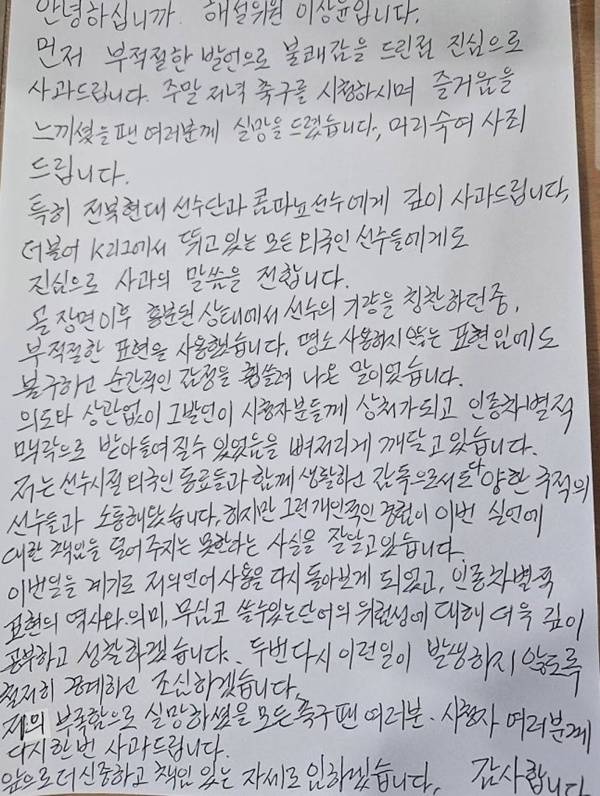 안녕하십니까. 해설위원 이상윤입니다.
먼저 부적절한 발언으로 불쾌감을 드린점 진심으로
사과드립니다. 주말 저녁 축구를 시청하시며 즐거움을
느끼셨을 팬 여러분께 실망을 드렸습니다, 머리숙여 사죄
드립니다.
특히 전북현대 선수단과 콤파뇨선수에게 깊이 사과드립니다,
더불어 K리그에서 뛰고 있는 모든 외국인 선수들에게도
진심으로 사과의 말씀을 전합니다.
골 장면이후 흥분된 상태에서 선수의 기량을 칭찬하던중,
부적절한 표현을 사용했습니다, 평소 사용하지 않는 표현임에도
불구하고 순간적인 감정을 휩쓸려 나온 말이었습니다.
의도타 상관없이 그발언이 시청자분들께 상처가되고 인종차별적
맥락으로 받아들여질수 있었음을 뼈저리게 깨닫고 있습니다.
저는 선수시절 외국인 동료들과 함께 생활하고 감독으로서도 다양한 국적의
선수들과 소통해왔습니다, 하지만 그런개인적인 경험이 이번 실언에
대한 책임을 덜어 주지는 못한다는 사실을 잘알고있습니다.
이번일을 계기로 저의언어 사용을 다시 돌아보게 되었고, 인종차별적
표현의 역사와 의미, 무심코 쓸수있는단어의 위험성에 대해 더욱 깊이
공부하고 성찰하겠습니다. 두번 다시 이런일이 발생하지 않도록
철저히 경계하고 조심하겠습니다.
저의 부족함으로 실망하셨을 모든축구 팬 여러분. 시청자 여러분께
다시한번 사과드립니다.
앞으로더 신중하고 책임 있는 자세로 임하겠습니다, 감사합니다